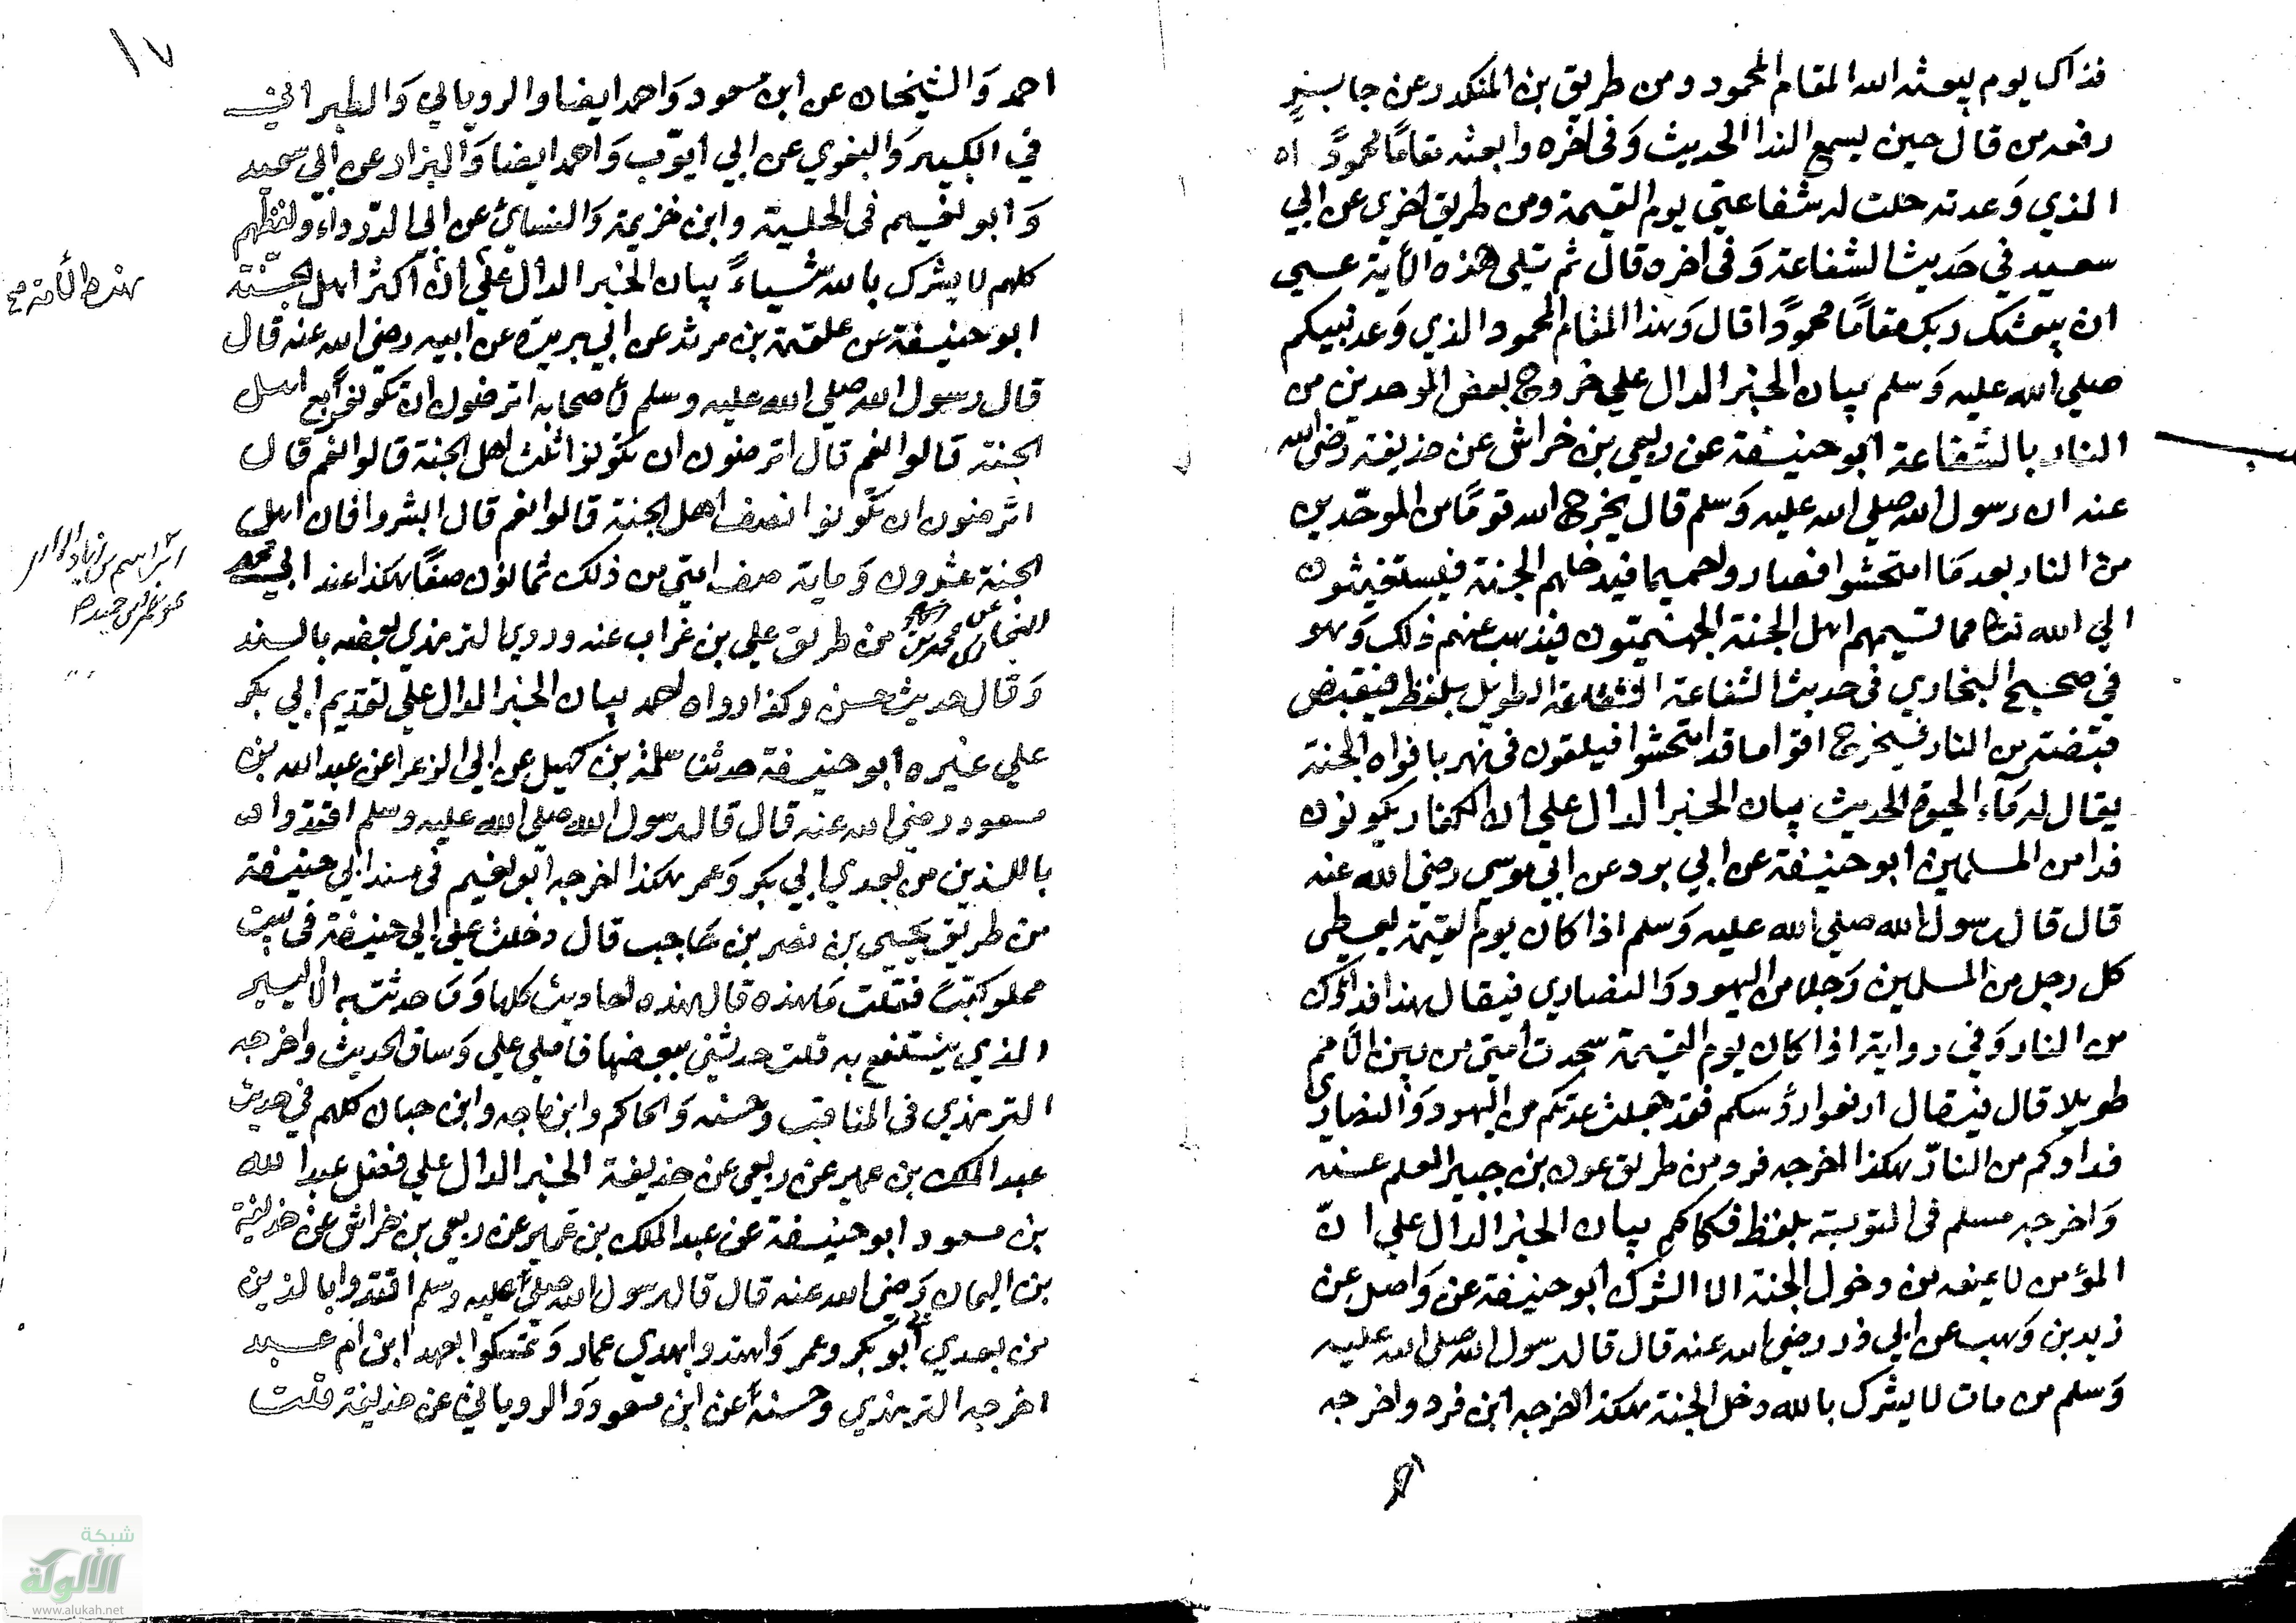 فذاك يوم يبعثه الله المقام المحمود ومن طريق بن المنكدر عن جابر
رفعه من قال حين يسمع الندا الحديث وفى اخره وابعثه مقاما محمودًا
الذي وعدته حلت له شفاعتى يوم القيمة ومن طريق اخري عن ابي
سعيد في حديث الشفاعة وفى اخره قال ثم تلى هذه الأية عسي
ان يبعثك ربك مقامًا محمودًا قال وهذا المقام المحمود الذي وعد نبيكم
صلي الله عليه وسلم بيان الخبر الدال علي خروج بعض الموحدين من
النار بالشفاعة ابو حنيفة عن ربعي بن خراش عن حذيفة رضي الله
عنه ان رسول الله صلي الله عليه وسلم قال يخرج الله قومًا من الموحّدين
من النار بعد ما امتحشوا فصاروا حميما فيدخلهم الجنة فيستغيثون
الي الله تعا مما تسيمهم اهل الجنة الجهنميّون فيذهب عنهم ذلك وهو
في صحيح البخاري فى حديث الشفاعة الطويل بلفظ فيقبض
قبضة من النار فيخرج اقواما قد امتحشوا فيلقون فى نهر بافواه الجنة
يقال له مآء الحيوة الحديث بيان الخبر الدال علي ان الكفار يكونون
فدا من المسلمين ابو حنيفة عن ابي برد عن ابي موسي رضي الله عنه
قال قال رسول الله صلي الله عليه وسلم اذا كان يوم القيمة يعطى
كل رجل من المسلمين رجلا من اليهود والنصاري فيقال هذا فداؤك
من النار وفي رواية اذا كان يوم القيمة سجدت امتى من بين الأمم
طويلا قال فيقال ارفعوا رؤسكم فقد جعلت عدتكم من اليهود والنصاري
فداوكم من النار هكذا اخرجه من طريق عون بن جبير المعلم عنه
واخرجه مسلم فى التوبة بلفظ فكاككم بيان الخبر الدال علي انّ
المؤمن لا يمنعه من دخول الجنة الا الشرك ابو حنيفة عن واصل عن
زيد بن وهب عن ابي ذر رضي الله عنه قال قال رسول الله صلي الله عليه
وسلم من مات لا يشرك بالله دخل الجنة هكذا اخرجه ابن فرد واخرجه
١٧
احمد والشيخان عن ابن مسعود واحمد ايضا والروياني والطبراني
في الكبير والبغوي عن ابي ايوب واحمد ايضا والبزار عن ابي سعيد
وابو نعيم فى الحلية وابن خزيمة والنسائ عن ابي الدرداء ولفظهم
كلهم لا يشرك بالله شيئاً بيان الخبر الدال علي ان اكثر اهل الجنة
هذه الأمة صح
ابو حنيفة عن علقمة بن مرثد عن ابي بريدة عن ابيه رضي الله عنه قال
قال رسول الله صلي الله عليه وسلم لأصحابه اترضون ان تكونوا ربع اهل
الجنة قالوا نعم قال اترضون ان تكونوا ثلث اهل الجنة قالوا نعم قال
اترضون ان تكونوا نصف اهل الجنة قالوا نعم قال ابشروا فان اهل
الجنة عشرون وماية صف امتى من ذلك ثمانون صفًا هكذا عند ابي محمد
البخاري عن محمد بن من طريق علي بن غراب عنه وروي الترمذي بعضه بالسند
وقال حديث حسن وكذا رواه احمد بيان الخبر الدال علي تقديم ابي بكر
علي غيره ابو حنيفة حدثنا سلمة بن كهيل عن ابي الزعرا عن عبد الله بن
مسعود رضي الله عنه قال قال رسول الله صلي الله عليه وسلم اقتدوا
باللذين من بعدي ابي بكر وعمر هكذا اخرجه ابو نعيم فى مسند ابي حنيفة
من طريق يحيي بن نصر بن حاجب قال دخلت علي ابي حنيفة فى بيت
مملو كتبًا فقلت ما هذه قال هذه احاديث كلها وما حدثت به الا اليسير
الذي ينتفع به قلت حدثني ببعضها فاملي علي وساق الحديث واخرجه
الترمذي فى المناقب وحسنه والحاكم وابن ماجه وابن حبان كلهم في حديث
عبد الملك بن عمير عن ربعي عن حذيفة الخبر الدال علي فضل عبد الله
بن مسعود ابو حنيفة عن عبد الملك بن عمير عن ربعي بن خراش عن حذيفة
بن اليمان رضي الله عنه قال قال رسول الله صلي الله عليه وسلم اقتدوا بالذين
من بعدي أبو بكر وعمر واهتدوا بهدي عمار وتمسكوا بعهد ابن ام عبد
اخرجه الترمذي وحسنه عن ابن مسعود والروياني عن حذيفة قلت
شبكة
الألوكة
www.alukah.net